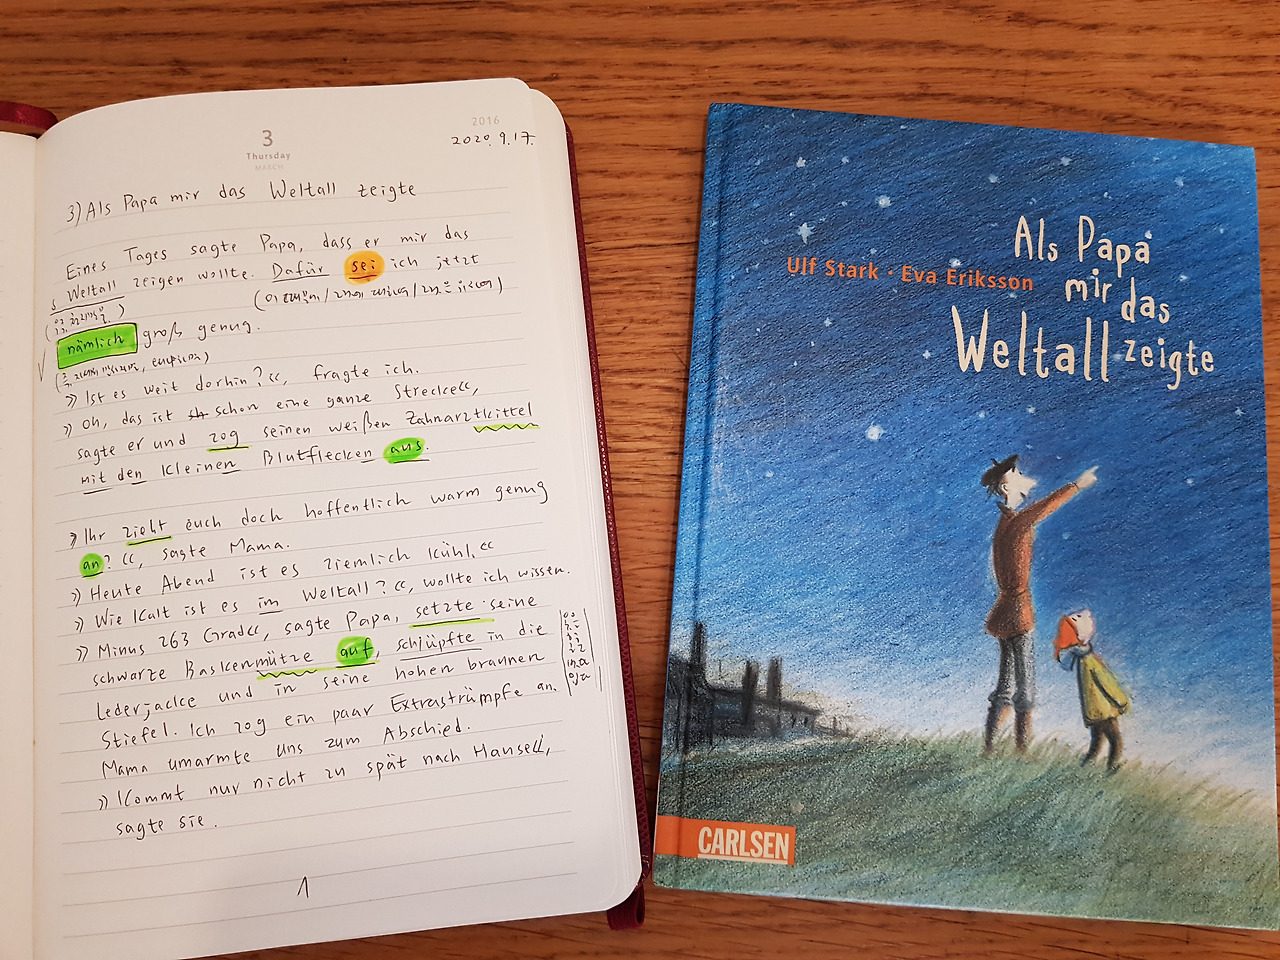 3
Thursday
MARCH
2016
2020. 9. 17.
3) Als Papa mir das Weltall zeigte
Eines Tages sagte Papa, dass er mir das
s Weltall zeigen wollte. Dafür sei ich jetzt
nämlich groß genug.
» Ist es weit dorhin? «, fragte ich.
» Oh, das ist schon eine ganze Strecke«,
sagte er und zog seinen weißen Zahnarztkittel
mit den kleinen Blutflecken aus.
» Ihr zieht euch doch hoffentlich warm genug
an? «, sagte Mama.
» Heute Abend ist es ziemlich kühl.«
» Wie kalt ist es im Weltall? «, wollte ich wissen.
» Minus 263 Grad«, sagte Papa, setzte seine
schwarze Baskenmütze auf, schlüpfte in die
Lederjacke und in seine hohen braunen
Stiefel. Ich zog ein paar Extrastrümpfe an.
Mama umarmte uns zum Abschied.
» Kommt nur nicht zu spät nach Hanse«,
sagte sie.
1
Als Papa
mir das
Weltall zeigte
Ulf Stark · Eva Eriksson
CARLSEN